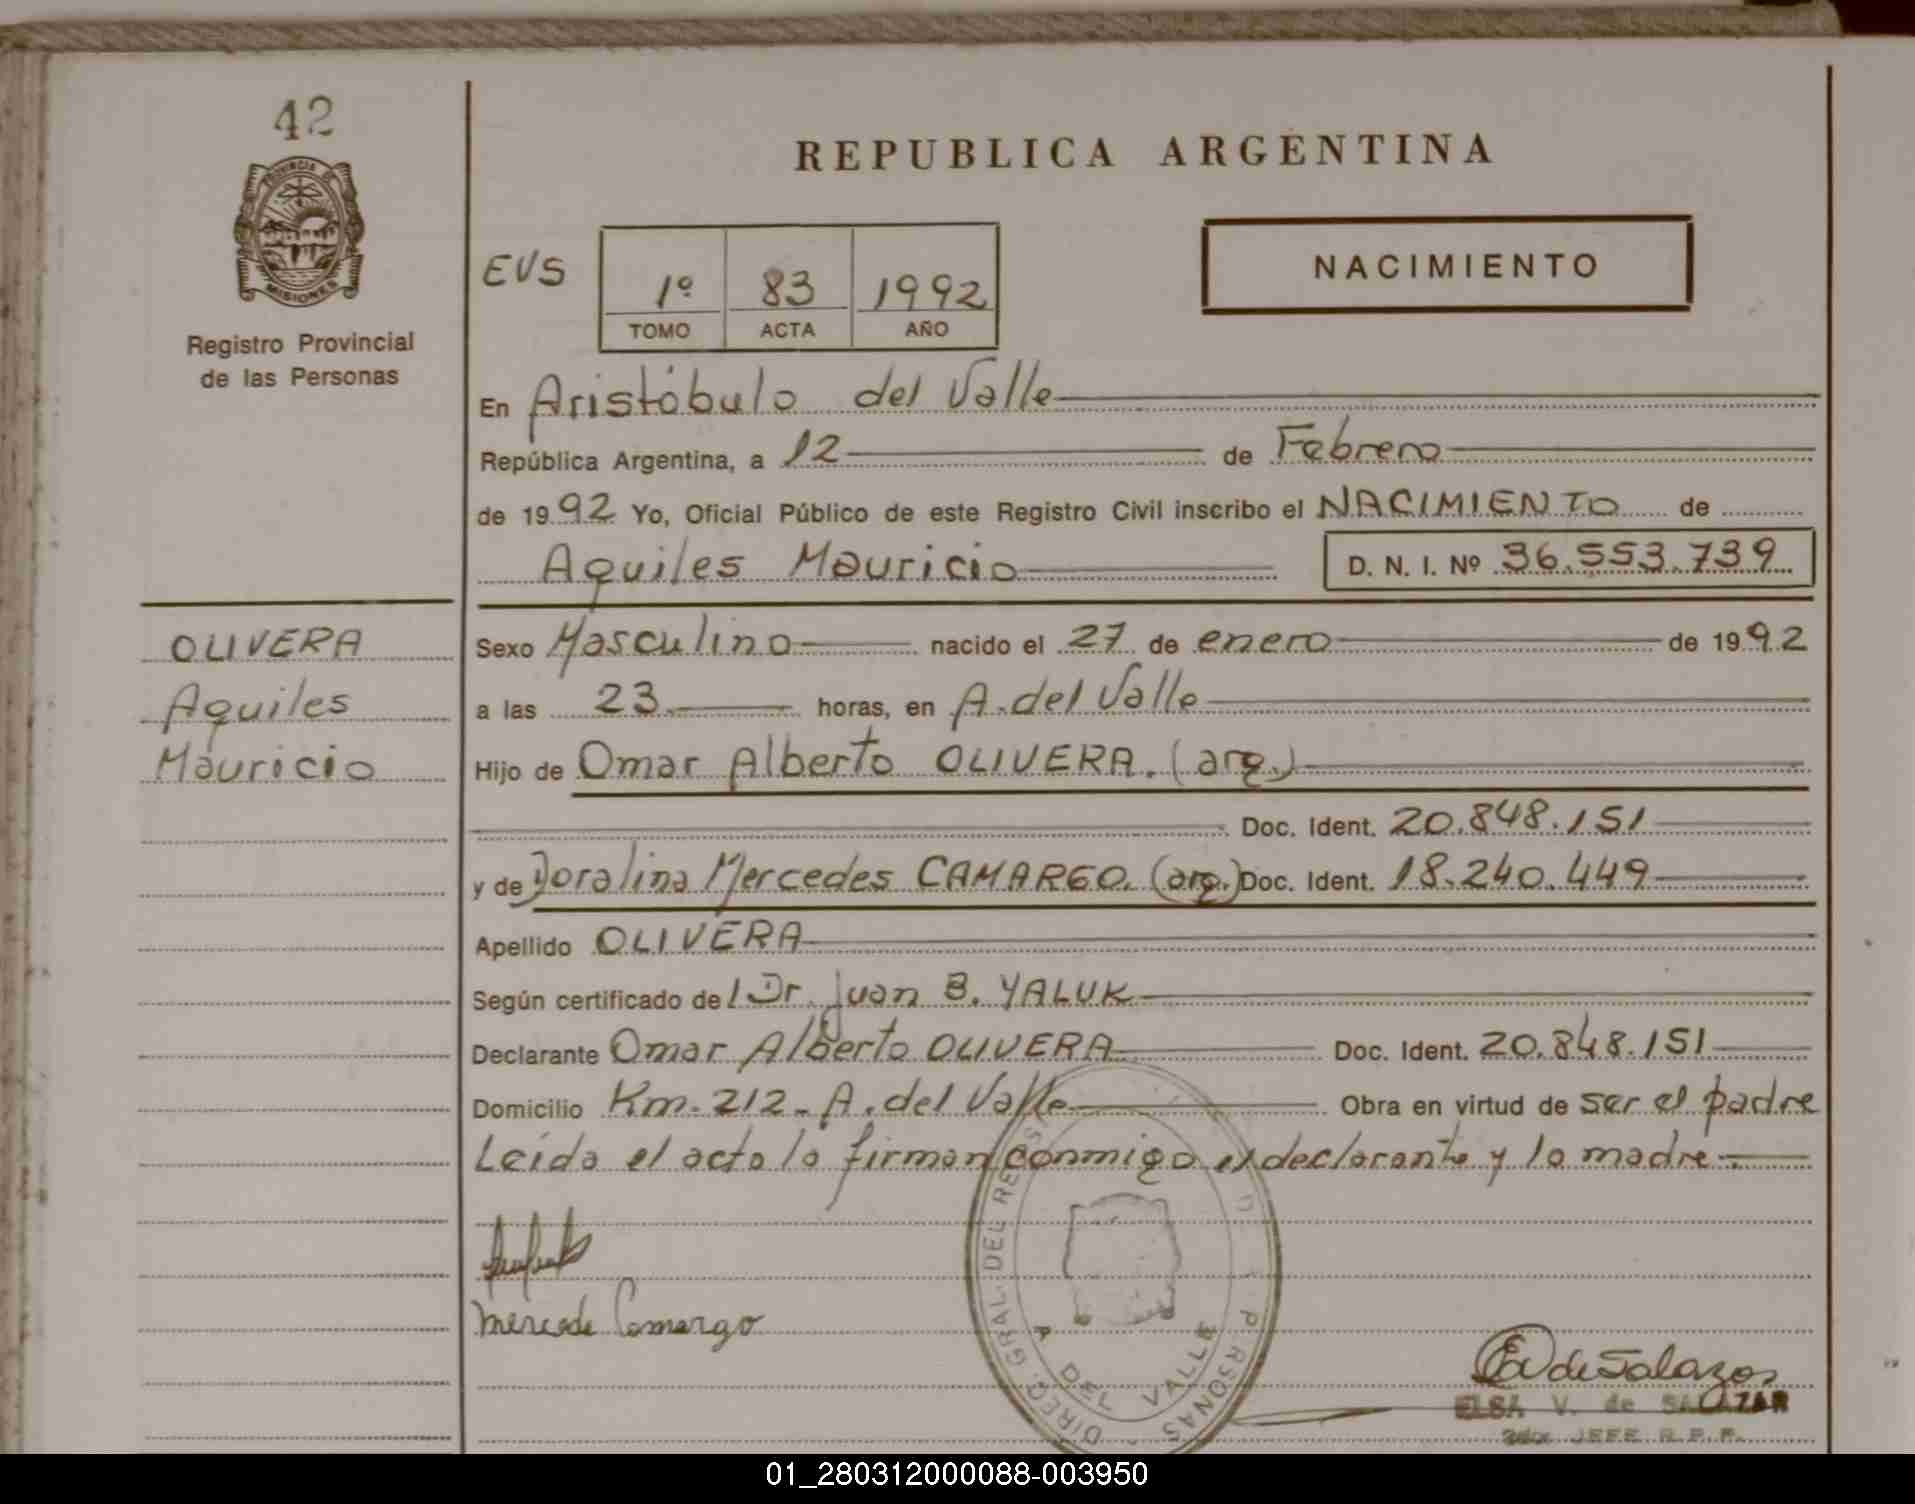 42
PROVINCIA DE
MISIONES
Registro Provincial
de las Personas
REPUBLICA ARGENTINA
EVS
1º 83 1992
TOMO ACTA AÑO
NACIMIENTO
En Aristóbulo del Valle
República Argentina, a 12 de Febrero
de 1992 Yo, Oficial Público de este Registro Civil inscribo el NACIMIENTO de
Aquiles Mauricio D. N. I. Nº 36.553.739
OLIVERA
Aquiles
Mauricio
Sexo Masculino nacido el 27 de enero de 1992
a las 23 horas, en A. del Valle
Hijo de Omar Alberto OLIVERA. (arg.)
Doc. Ident. 20.848.151
y de Doralina Mercedes CAMARGO. (arg.) Doc. Ident. 18.240.449
Apellido OLIVERA
Según certificado del Dr. Juan B. YALUK
Declarante Omar Alberto OLIVERA Doc. Ident. 20.848.151
Domicilio Km. 212- A. del Valle Obra en virtud de ser el padre
Leída el acta la firman conmigo el declarante y la madre
Mercede Camargo
DIREC. GRAL. DEL REGIST
PERSONAS
A DEL VALLE
EV de Salazar
ELSA V. de SALAZAR
JEFE R.P.P.
01_280312000088-003950